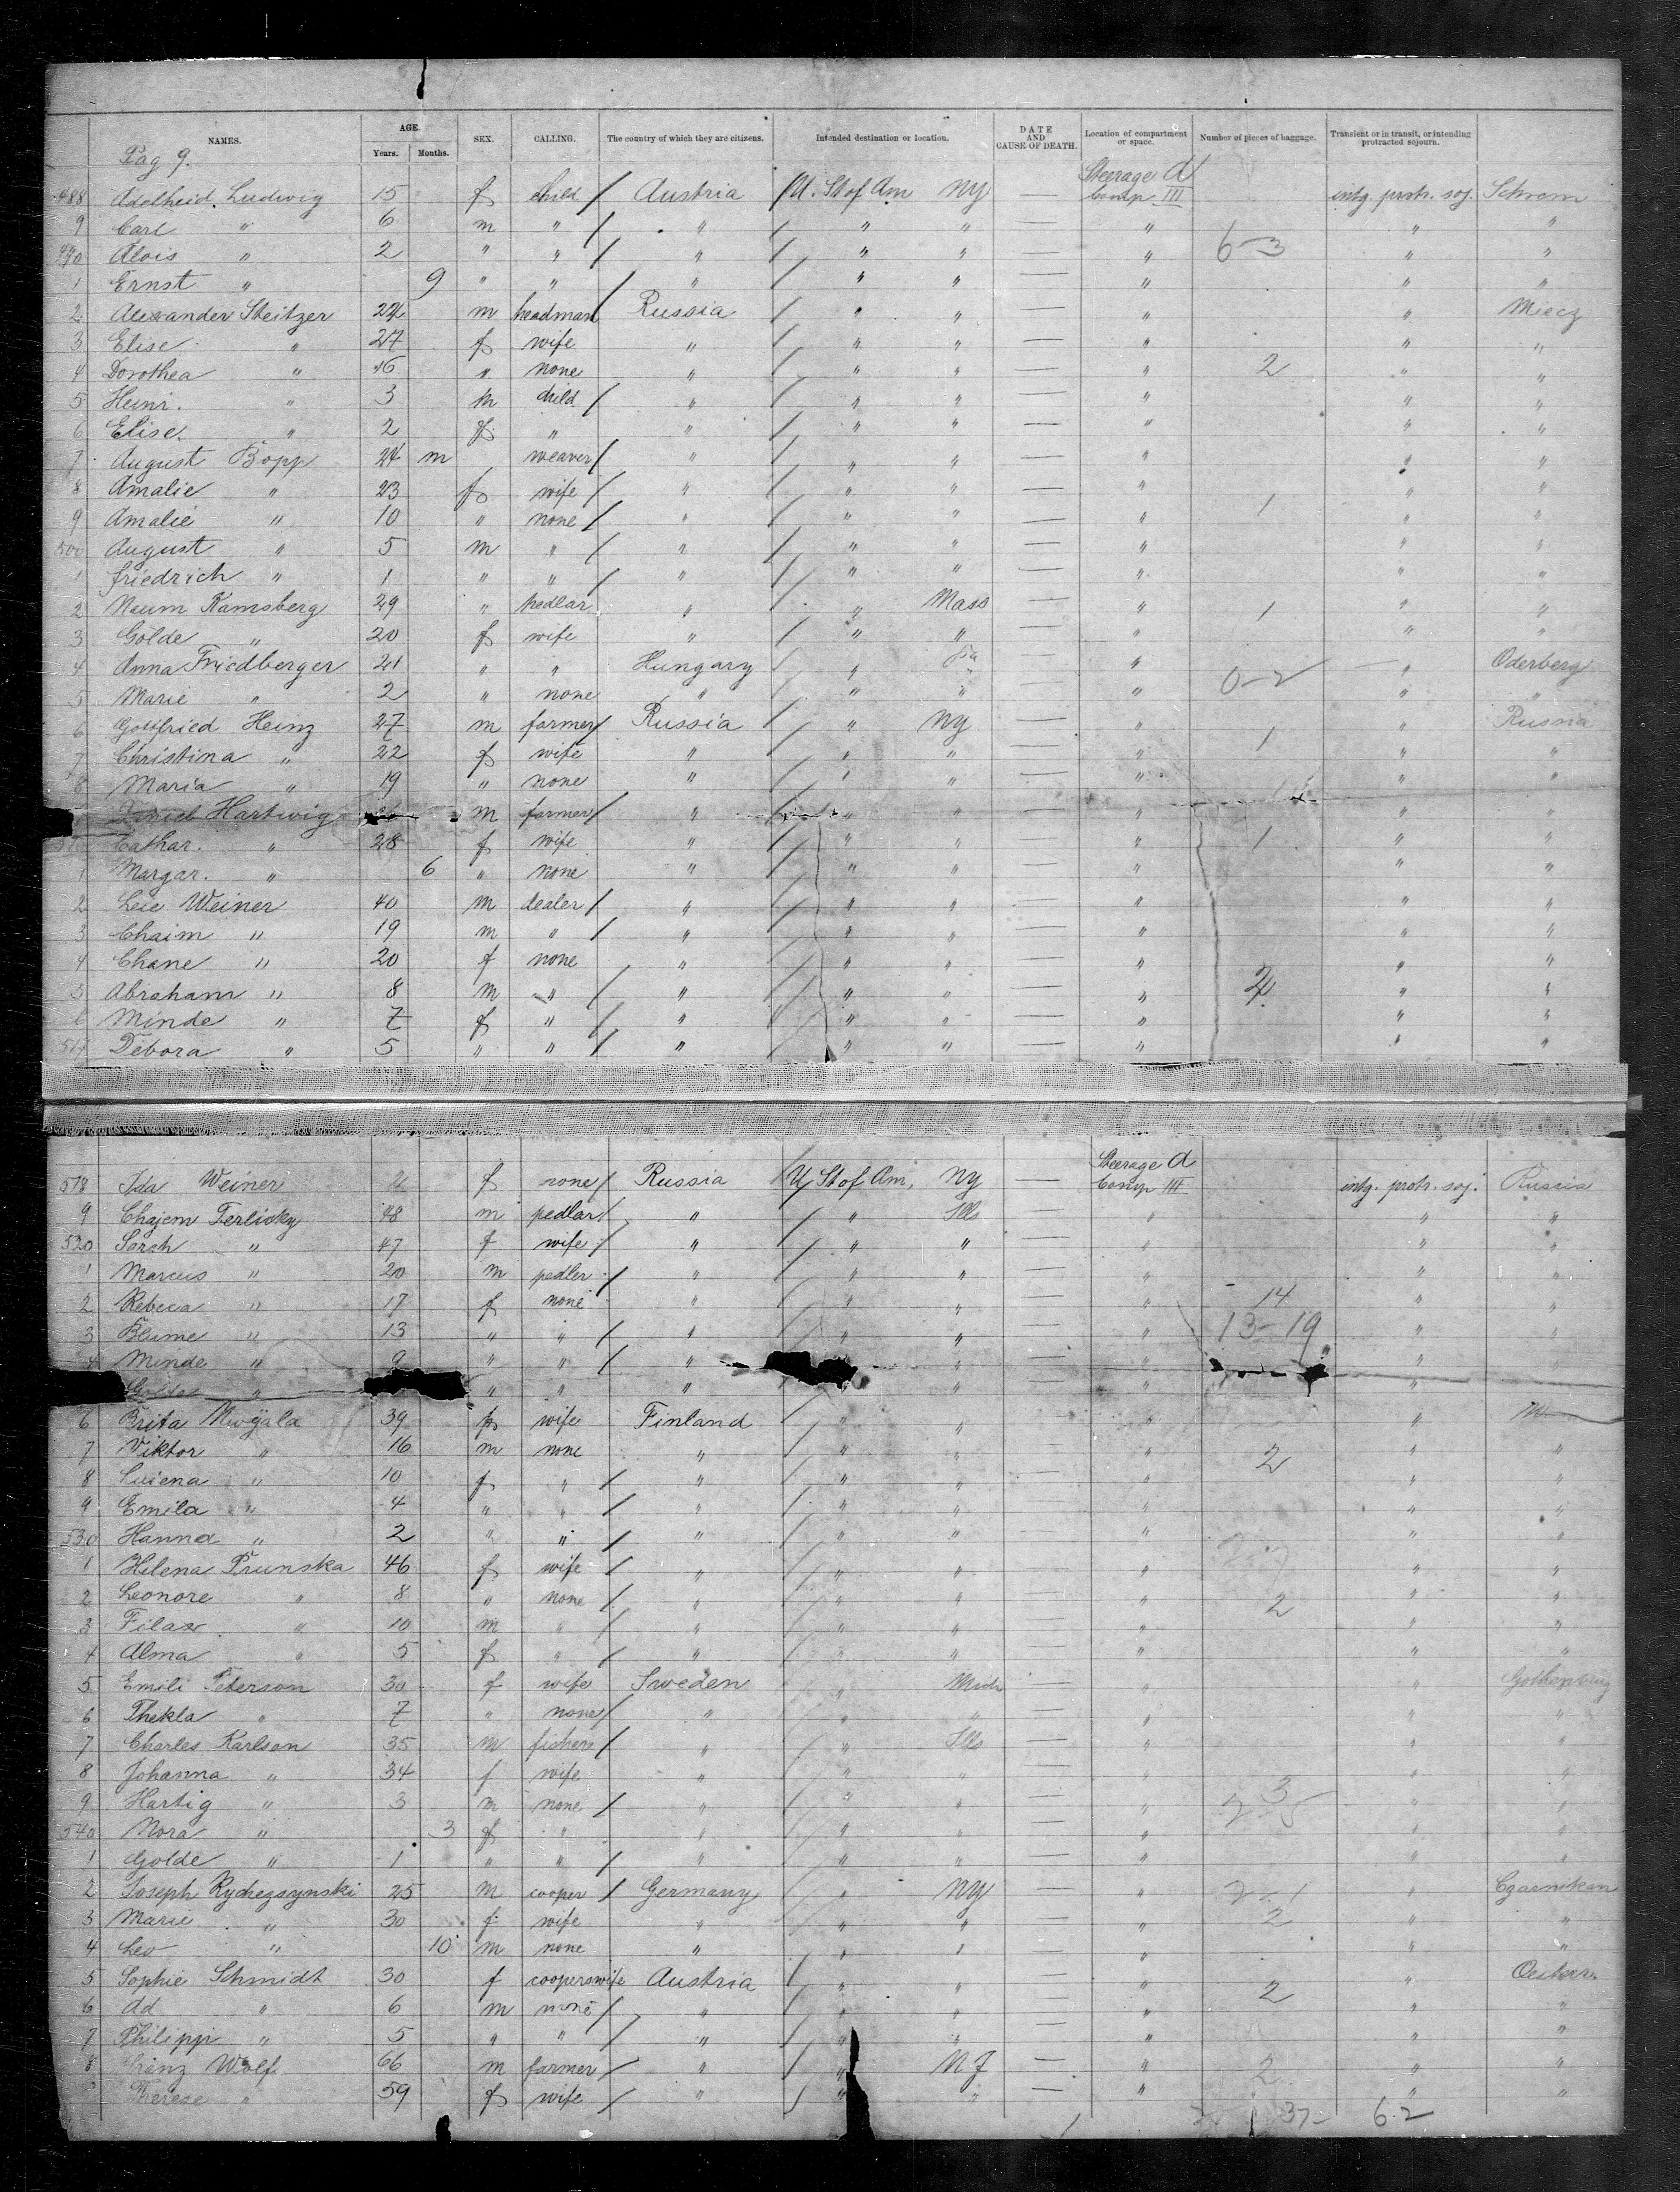 NAMES. AGE. Years. Months. SEX. CALLING. The country of which they are citizens. Intended destination or location. DATE AND CAUSE OF DEATH. Location of compartment or space. Number of pieces of baggage. Transient or in transit, or intending protracted sojourn.
Pag 9.
488 Adelheid Ludwig 15 f child / Austria / U. St of Am NY — Steerage A Comp III intg. protr. soj.
9 Carl " 6 m " / " / " " — " " "
490 Alois " 2 " " / " / " " — " 6-3 " "
1 Ernst " 9 " " / " / " " — " " "
2 Alexander Steitzer m headman Russia / " " — " " Miecz
3 Elise " 27 f wife " / " " — " " "
4 Dorothea " 16 " none " / " " — " 2 " "
5 Heinr. " 3 m child / " / " " — " " "
6 Elise " 2 f " " / " " — " " "
7 August Bopp 24 m weaver / " / " " — " " "
8 Amalie " 23 f wife / " / " " — " " "
9 Amalie " 10 " none / " / " " — " 1 " "
500 August " 5 m " / " / " " — " " "
1 Friedrich " 1 " " / " / " " — " " "
2 Naum Ramsberg 29 " pedlar " " Mass — " 1 " "
3 Golde " 20 f wife " / " " — " " "
4 Anna Friedberger 21 " " Hungary / " Pa " 0-2 — " Oderberg
5 Marie " 2 " none " / " " — " " "
6 Gottfried Heinz 27 m farmer / Russia / " NY — " " Russia
7 Christina " 22 f wife " / " " — " 1 " "
8 Maria " 19 " none " / " " — " " "
Hartwig m farmer / " / " — " " "
Cathar. " 28 f wife " / " " — " 1 " "
1 Margar. " 6 " none " / " " — " " "
2 Leie Weiner 40 m dealer / " / " " — " " "
3 Chaim " 19 m " / " / " " — " " "
4 Chane " 20 f none " / " " — " " "
5 Abraham " 8 m " / " / " " — " " "
6 Minde " 7 f " / " / " " — " " "
517 Debora " 5 " " / " / " " — " " "
518 Ida Weiner f none / Russia / U St of Am, NY — Steerage A Comp III intg. protr. soj. Russia
9 Chajem Terlicky 48 m pedlar / " / " Ills — " " "
520 Sorch " 47 f wife / " / " " — " " "
1 Marcus " 20 m pedler / " / " " — " " "
2 Rebeca " 17 f none " / " " — " 14 " "
3 Blume " 13 " " / " / " " — " 13-19 " "
4 Minde " 9 " " / " " — " " "
" " " " / " — " "
6 Brita 39 f wife Finland / " " — " "
7 Viktor " 16 m none " / " " — " 2 " "
8 Luiena " 10 f " / " / " " — " " "
9 Emila " 4 " " / " / " " — " " "
530 Hanna " 2 " " / " / " " — " " "
1 Helena Prunska 46 f wife / " / " " — " " "
2 Leonore " 8 " none / " / " " — " 2 " "
3 " 10 m " / " / " " — " " "
4 Alma " 5 f " / " / " " — " " "
5 Emili Peterson 30 f wife Sweden / " — " " Gothenburg
6 Thekla " 7 " none / " / " " — " " "
7 Charles Karlson 35 m fisher / " / " Ills — " " "
8 Johanna " 34 f wife " / " " — " " "
9 Hartig " 3 m none / " / " " — " " "
540 Nora " 3 f " " / " " — " " "
1 Golde " 1 " " / " / " " — " " "
2 Joseph Rychezsynski 25 m cooper / Germany / " NY — " 2-1 " Czarnikau
3 Marie " 30 f wife " / " " — " 2 " "
4 Leo " 10 m none " / " " — " " "
5 Sophie Schmidt 30 f cooperswife Austria / " " — " 2 " Oesterr.
6 Ad " 6 m none / " / " " — " " "
7 Philipp " 5 " " / " / " " — " " "
8 Wolf 66 m farmer / " / " NJ — " 2 " "
Therese " 59 f wife / " / " " — " " "
37- 6.2